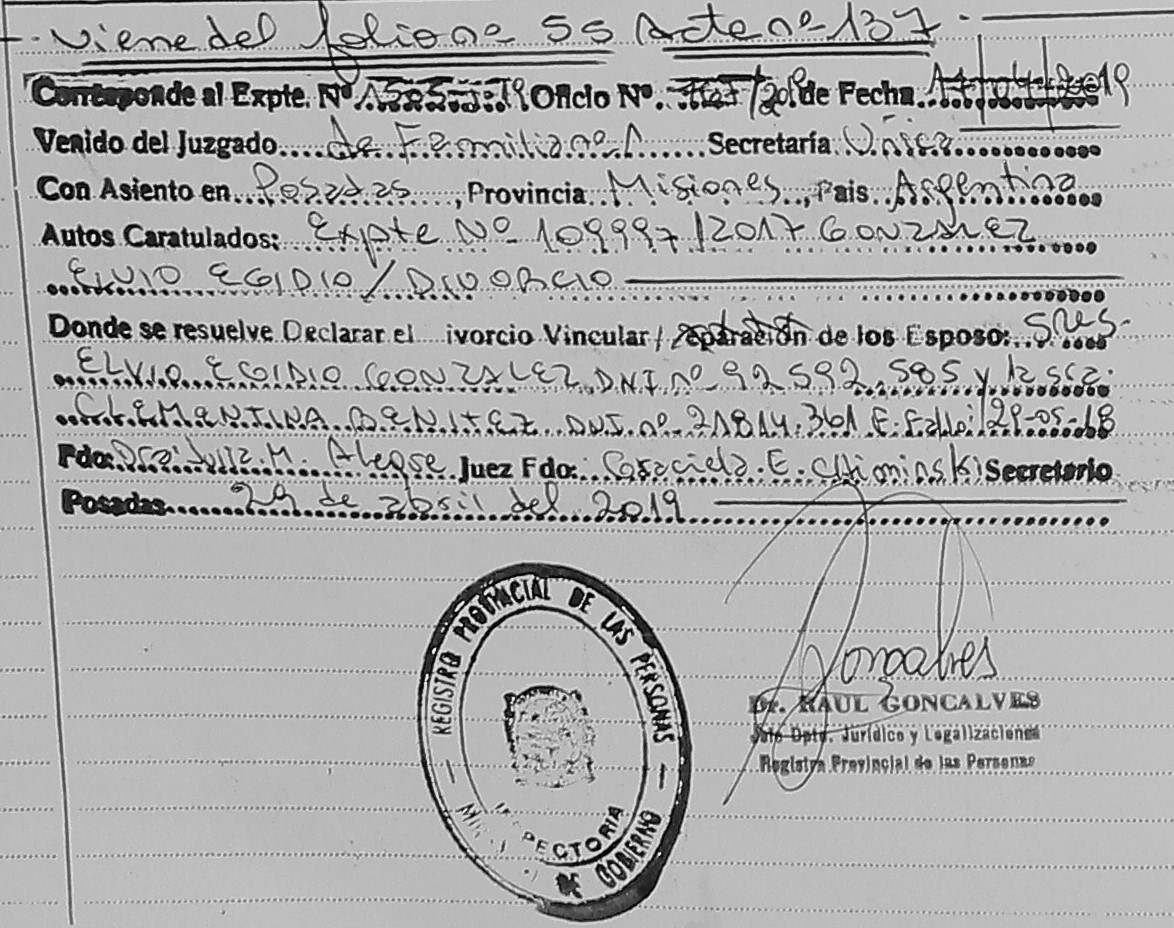 Viene del folio nº 55 Acta nº 137
Corresponde al Expte. Nº Oficio Nº. de Fecha 17/04/2019
Venido del Juzgado de Familia nº 1 Secretaría Única
Con Asiento en Posadas, Provincia Misiones, Pais Argentina
Autos Caratulados: Expte Nº 109997/2017 GONZALEZ
ELVIO EGIDIO / DIVORCIO
Donde se resuelve Declarar el ivorcio Vincular / eparación de los Esposo: Sres.
ELVIO EGIDIO GONZALEZ DNI nº 92592.585 y la sra.
CLEMENTINA BENITEZ DNI. nº 21814.361 F. Fallo: 29-05-18
Fdo: Dra. Julia. M. Alegre Juez Fdo: Graciela. E. Secretario
Posadas 29 de abril del 2019
REGISTRO PROVINCIAL DE LAS PERSONAS
INSPECTORIA
DE GOBIERNO
Gonçalves
Dr. RAUL GONCALVES
Jefe Dpto. Jurídico y Legalizaciones
Registro Provincial de las Personas